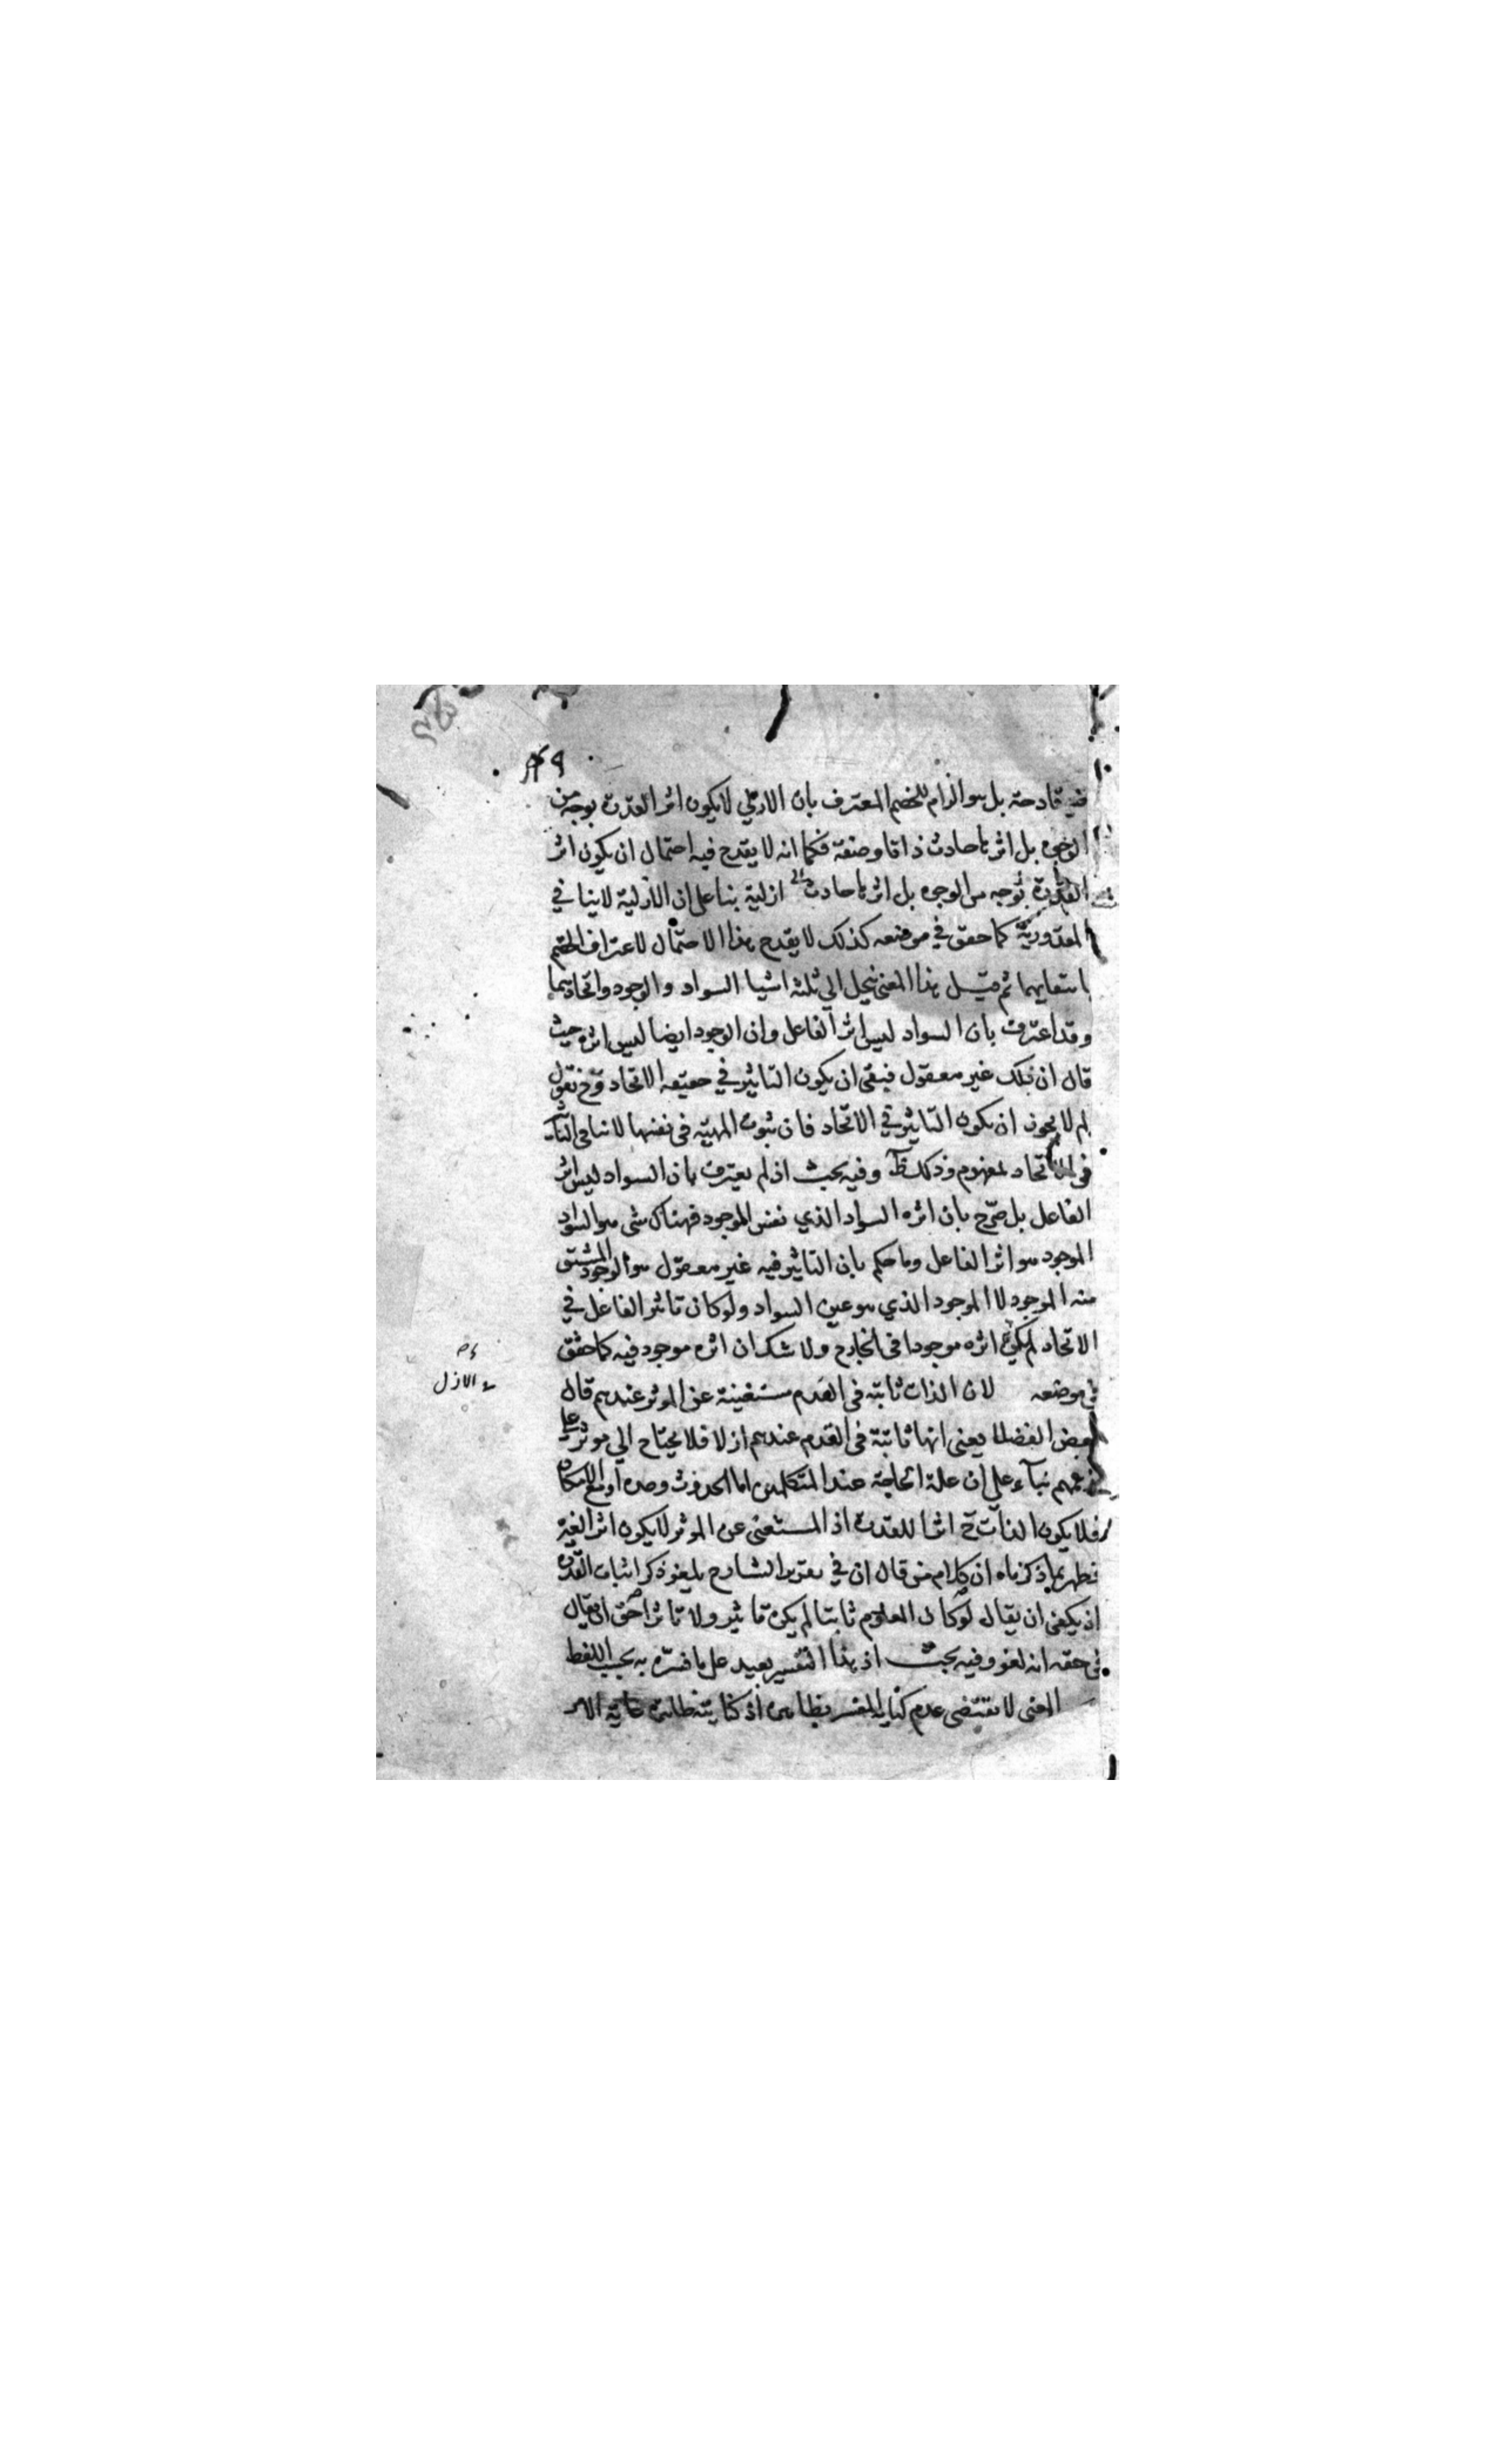 فيه قادحة بل هو الزام للخصم المعترف بان الازلي لا يكون اثر القدرة بوجه من
الوجوه بل اثرها حادث ذاتا وصفة فكما انه لا يقدح فيه احتمال ان يكون اثر
القدرة بوجه من الوجوه بل اثرها حادث ازلية بنا على ان الازلية لا ينافي
المقدورية كما حقق في موضعه كذلك لا يقدح هذا الاحتمال لاعتراف الخصم
بانتفايهما ثم قيل هذا المعنى ينحل الي ثلثه اشيا السواد والوجود واتحادهما
وقد اعترف بان السواد ليس اثر الفاعل وان الوجود ايضا ليس اثره حيث
قال ان ذلك غير معقول فبقى ان يكون التاثير في حقيقه الاتحاد وح نقول
لم لا يجوز ان يكون التاثير في الاتحاد فان ثبوت المهيه في نفسها لا ينافي التاثير
في الاتحاد لمفهوم وذلك ظ وفيه بحث اذ لم يعترف بان السواد ليس اثر
الفاعل بل صرح بان اثره السواد الذي نفس الموجود فهناك شي هو السواد
الموجود هو اثر الفاعل وما حكم بان التاثير فيه غير معقول هو الوجود المشتق
منه الموجود لا الموجود الذي هو عين السواد ولو كان تاثير الفاعل في
الاتحاد لم يكن اثره موجودا في الخارج ولا شك ان اثره موجود فيه كما حقق
في موضعه لان الذات ثابته في القدم مستغنية عن الموثر عندهم قال
في الازل
بعض الفضلا يعنى انها ثابتة في القدم عندهم ازلا فلا يحتاج الي موثر على
زعمهم بنآء على ان علة الحاجة عند المتكلمين اما الحدوث وحده او مع الامكان
فلا يكون الذات ح اثرا للقدرة اذ المستغنى عن الموثر لا يكون اثرا لغيره
فظهر بما ذكرناه ان كلام من قال ان في تقرير الشارح يلغو ذكر اثبات القدرة
اذ يكفي ان يقال لو كان المعلوم ثابتا لم يكن تاثير ولا تاثرا حق ان يقال
في حقه انه لغو وفيه بحث اذ هذا التفسير بعيد على ما فسره به بحسب اللفظ
المعنى لا يقتضى عدم كفاية المفسر بظاهره اذ كفايته ظاهرة غاية الامر